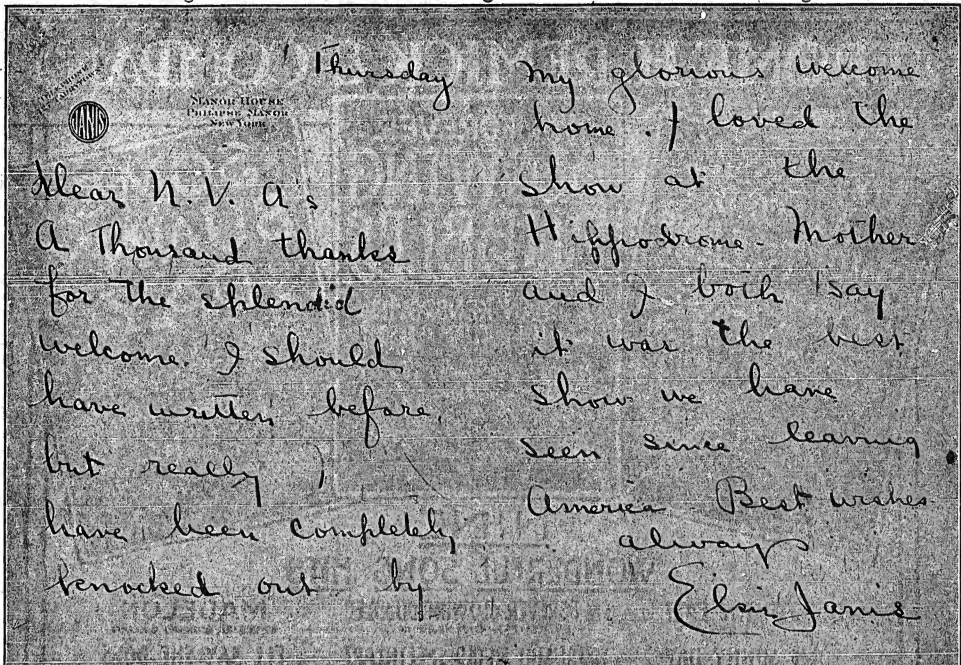 Thursday
JANIS
MANOR HOUSE
PHILIPSE MANOR
NEW YORK
Dear N.V.A's
A Thousand thanks
for the splendid
welcome. I should
have written before,
but really I
have been completely
knocked out by
my glorious welcome
home. I loved the
show at the
Hippodrome. Mother
and I both say
it was the best
show we have
seen since leaving
America Best wishes
always
Elsie Janis